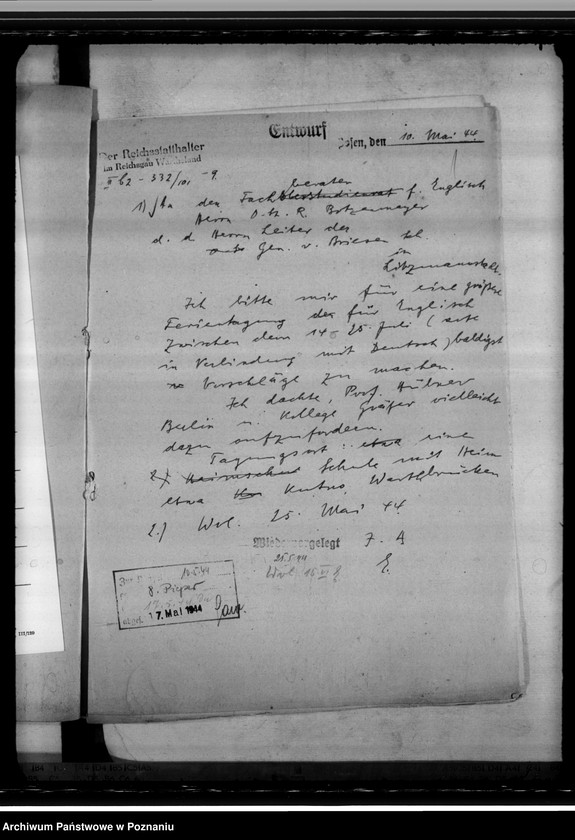 Entwurf
Posen, den 10. Mai 44.
Der Reichsstatthalter
im Reichsgau Wartheland
II b2 - 332/101 - 9.
1) An den Fachberater f. Englisch
Herrn O.St.R. Botzenmayer
d. d. Herrn Leiter der
Gen. v. Briesen Sch.
in
Litzmannstadt.
Ich bitte mir für eine größere
Ferientagung der für Englisch
zwischen dem 14 - 25. Juli (evtl
in Verbindung mit Deutsch) baldigst
Vorschläge zu machen.
Ich dachte, Prof. Hübner
Berlin u. Kollege Gräfer vielleicht
dazu aufzufordern.
Tagungsort: etwa eine
Schule mit Heim
etwa Kutno, Warthbrücken
2.) Wvl. 25. Mai 44
Wiedervorgelegt
25.5.44
Wvl 16 VI
10.5.44
8. Pieper
abgel. 17. Mai 1944
111/189
Archiwum Państwowe w Poznaniu